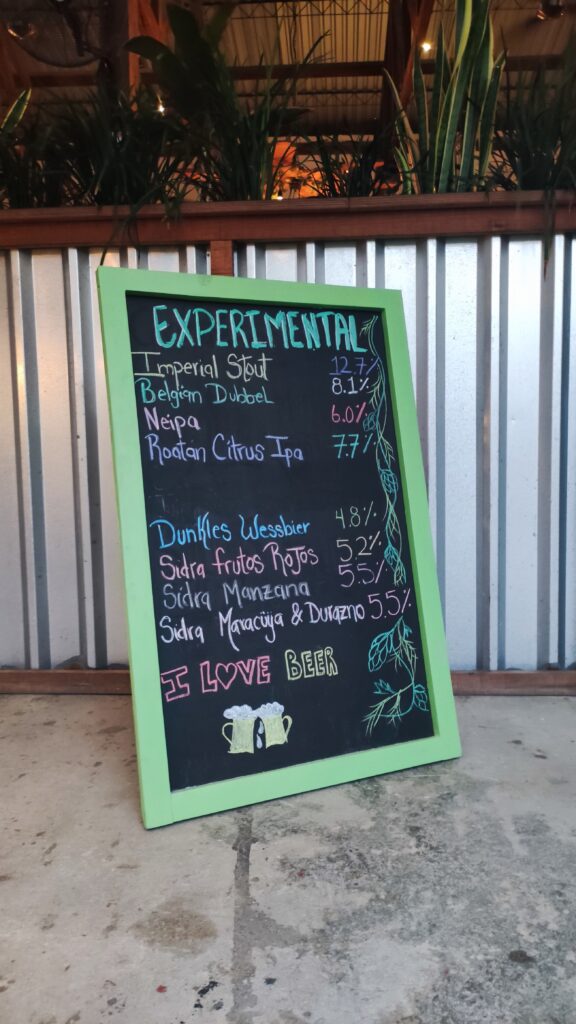 EXPERIMENTAL
Imperial Stout 12.7%
Belgian Dubbel 8.1%
Neipa 6.0%
Roatan Citrus Ipa 7.7%
Dunkles Wessbier 4.8%
Sidra frutos Rojos 5.2%
Sidra Manzana 5.5%
Sidra Maracüya & Durazno 5.5%
I LOVE BEER